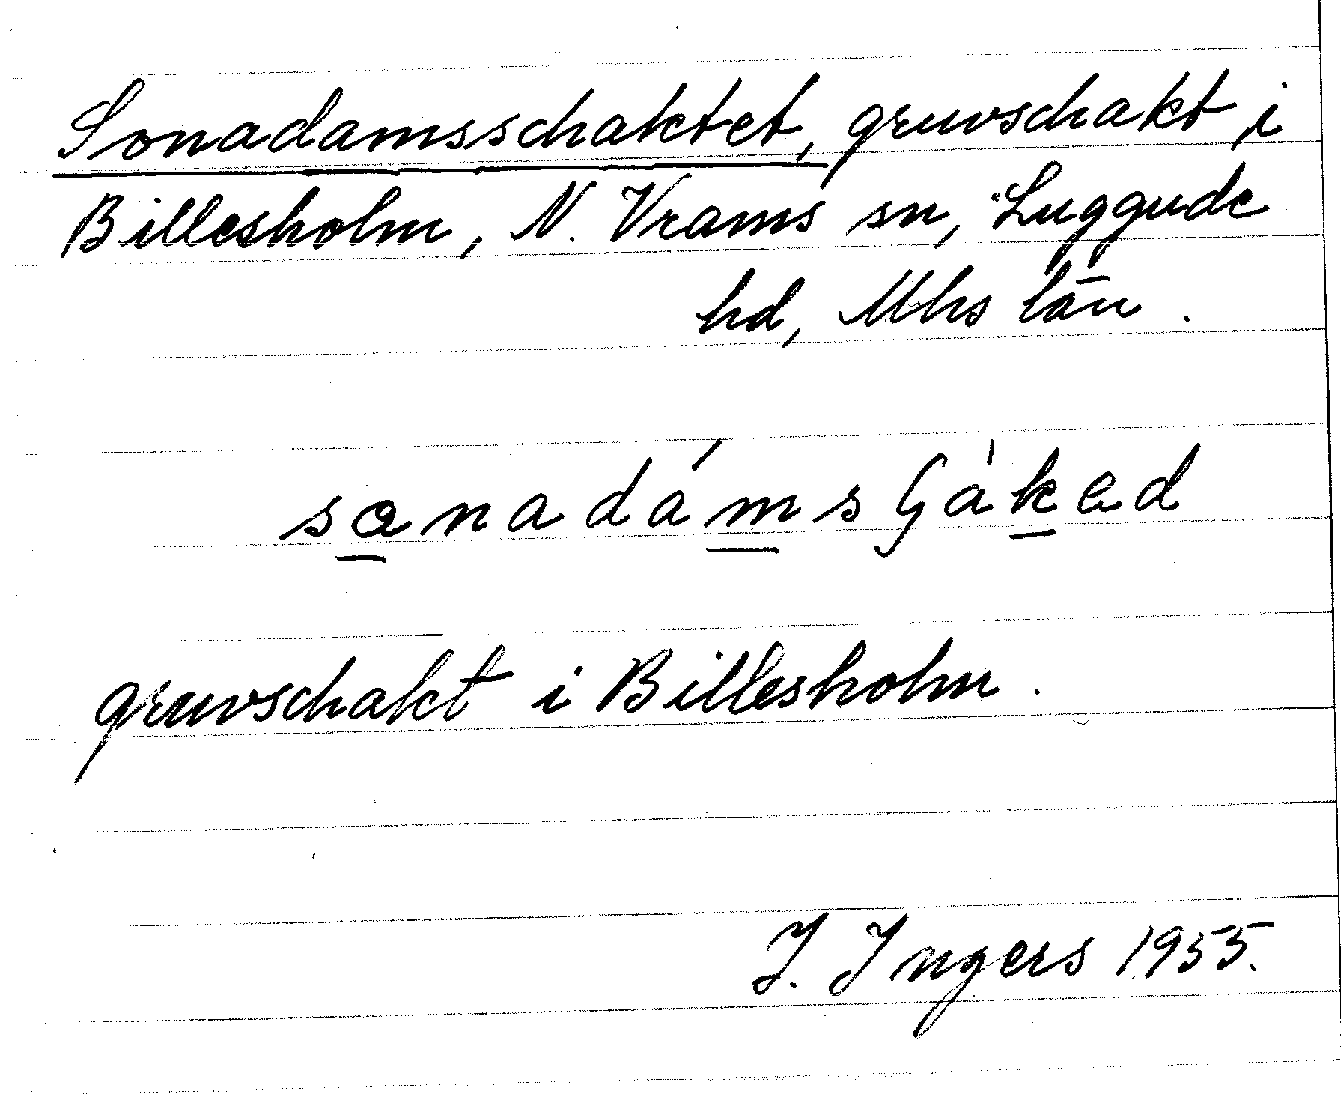 Sonadamsschaktet, gruvschakt i
Billesholm, N. Vrams sn, Luggude
hd, Mhs län.
sơnadámsʃàkəd
gruvschakt i Billesholm.
I. Ingers 1955.